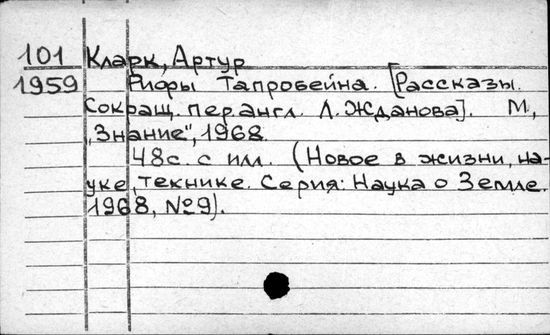 101 Кларк, Артур
1959 Рифы Тапробейна. [Рассказы.
Сокращ. пер. англ. Л. Жданова]. М.,
„Знание", 1968.
48с. с илл. (Новое в жизни, на-
уке, технике. Серия: Наука о Земле.
1968, №9).